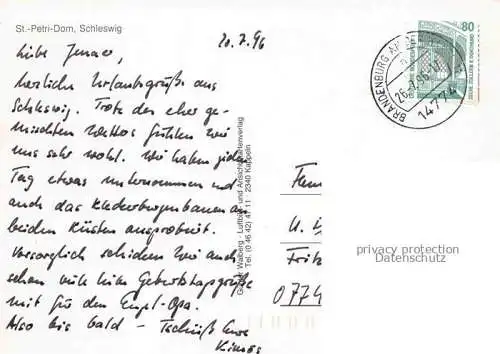 St.-Petri-Dom, Schleswig
20.7.96
Liebe Jenaer,
herzliche Urlaubsgrüße aus
Schleswig. Trotz des eher ge-
mischten Wetters fühlen wir
uns sehr wohl. Wir haben jeden
Tag etwas unternommen und
auch das Kleckerburgenbauen an
beiden Küsten ausprobiert.
Vorsorglich schicken wir auch
schon viele liebe Geburtstagsgrüße
mit für den Opa.
Also bis bald - Tschüß Eure
Luftbild- und Ansichtskartenverlag
Tel. (0 46 42) 41 11 2340 Kappeln
80
BRANDENBURG
1477
Fritz
0774
privacy protection
Datenschutz